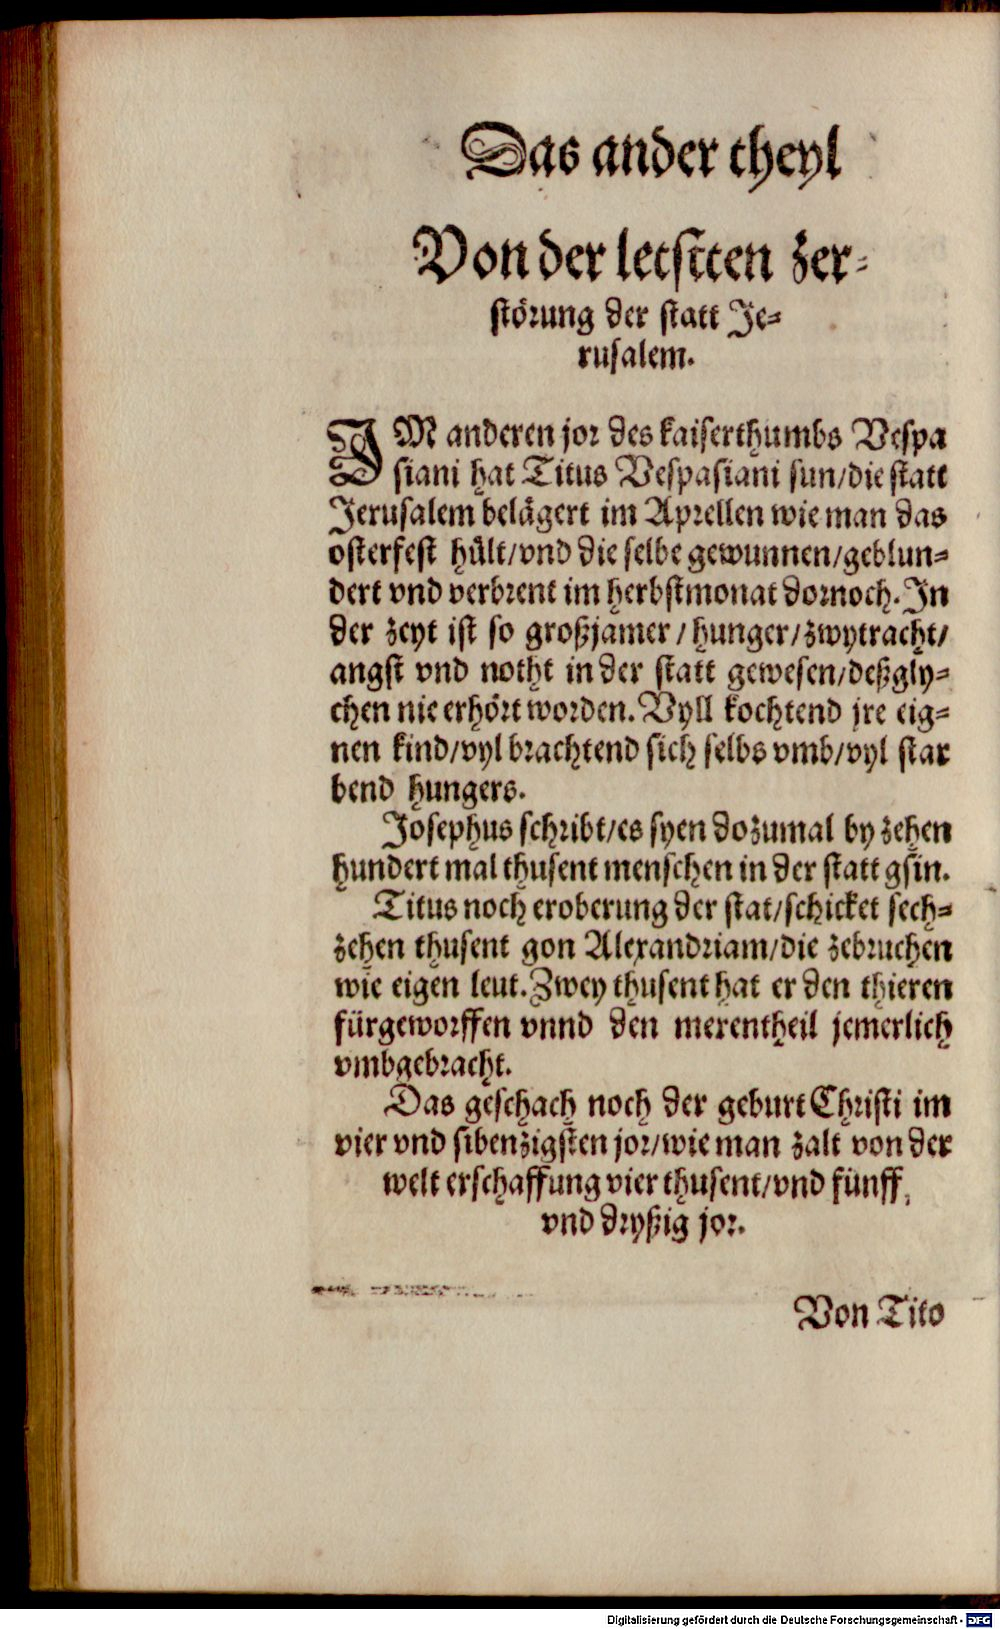 Das ander theyl
Von der letsten zer-
störung der statt Je-
rusalem.
IM anderen jor des kaiserthumbs Vespa
siani hat Titus Vespasiani sun/die statt
Jerusalem belägert im Aprellen wie man das
osterfest hült/vnd die selbe gewunnen/geblun-
dert vnd verbrent im herbstmonat dornoch. In
der zeyt ist so großjamer/hunger/zwytracht/
angst vnd notht in der statt gewesen/deßgly-
chen nie erhört worden. Vyll kochtend jre eig-
nen kind/vyl brachtend sich selbs vmb/vyl star
bend hungers.
Josephus schribt/es syen dozumal by zehen
hundert mal thusent menschen in der statt gsin.
Titus noch eroberung der stat/schicket sech-
zehen thusent gon Alexandriam/die zebruchen
wie eigen leut. Zwey thusent hat er den thieren
fürgeworffen vnnd den merentheil jemerlich
vmbgebracht.
Das geschach noch der geburt Christi im
vier vnd sibenzigsten jor/wie man zalt von der
welt erschaffung vier thusent/vnd fünff,
vnd dryßig jor.
Von Tito
Digitalisierung gefördert durch die Deutsche Forschungsgemeinschaft - DFG